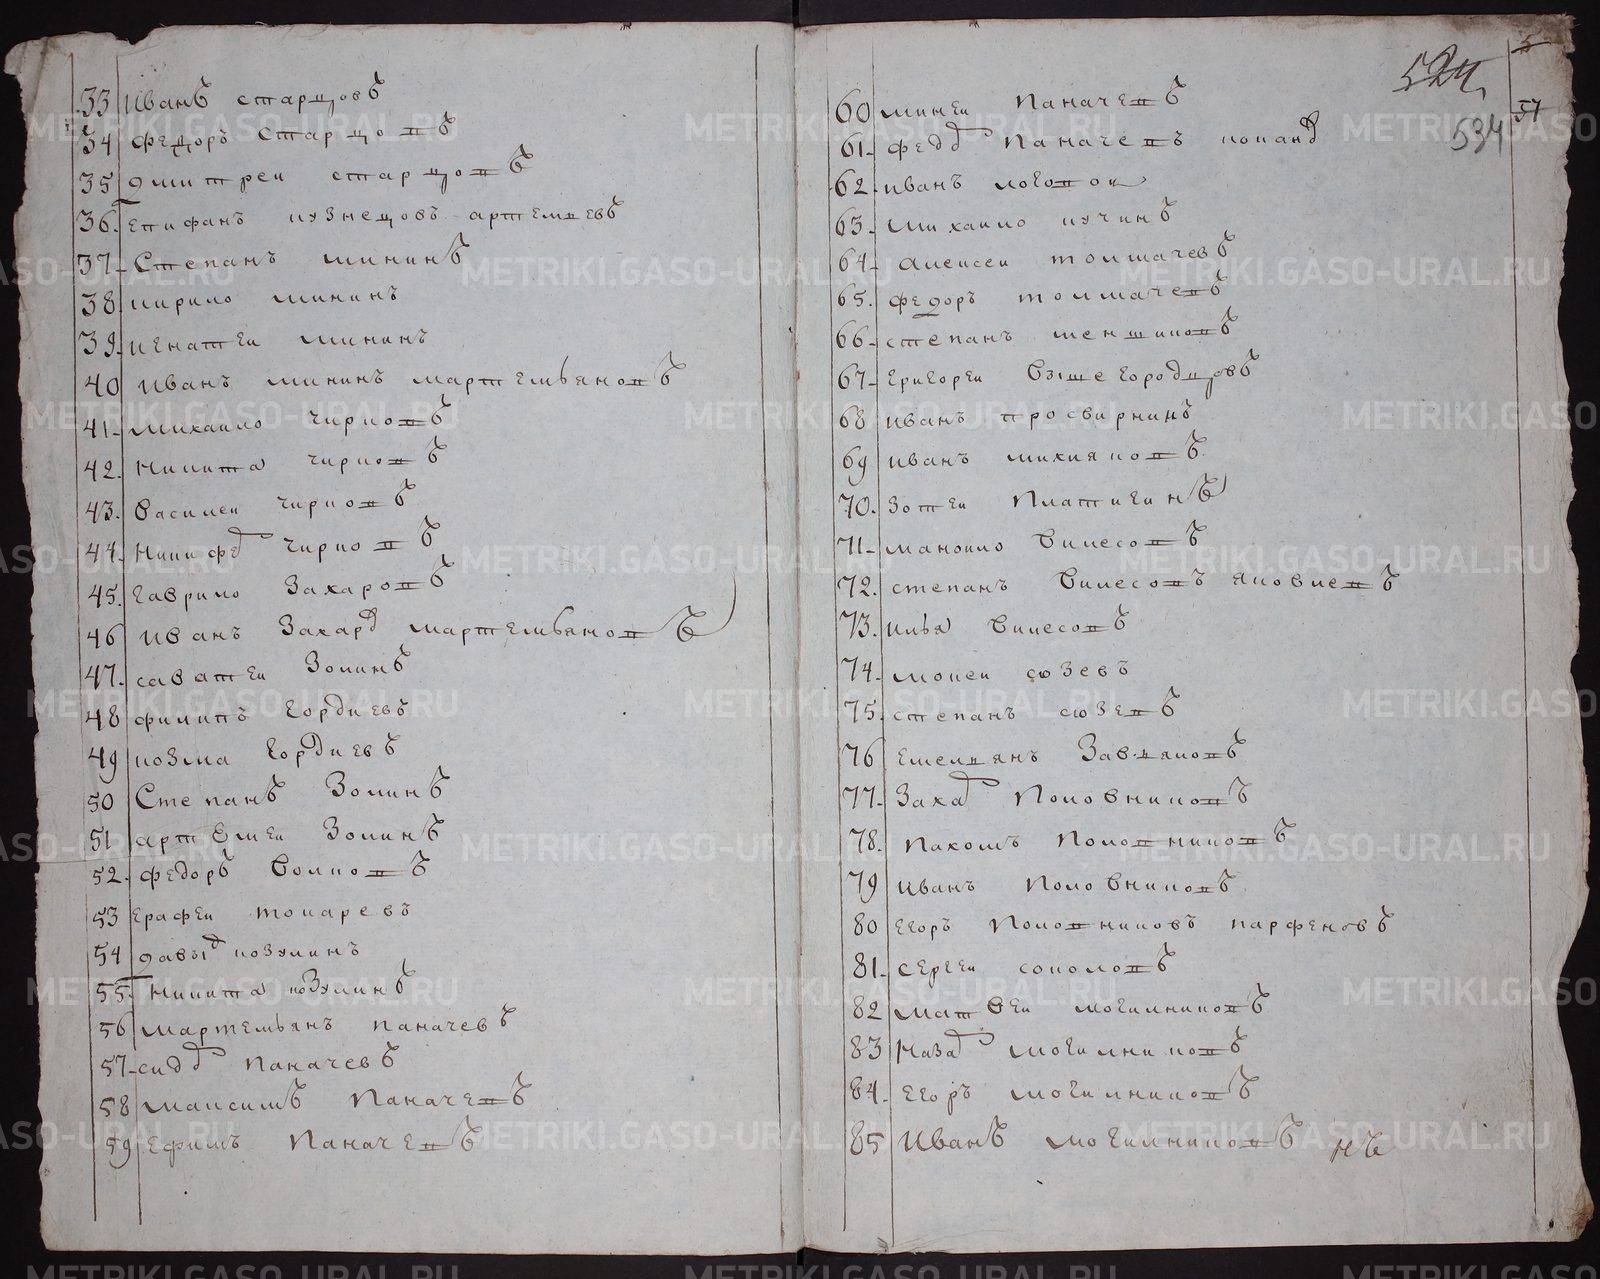 33 Иванъ старцовъ
34 Федоръ старцовъ
35 Дмитреи старцовъ
36. Епифанъ кузнецовъ артемьевъ
37. Степанъ мининъ
38 кирило мининъ
39. игнатеи мининъ
40 Иванъ мининъ мартемьяновъ
41. михаило чирковъ
42. Никита чирковъ
43. Василеи чирковъ
44. Никифоръ чирковъ
45. гаврило Захаровъ
46 Иванъ Захаръ мартемьяновъ
47. саватеи Золинъ
48 филипъ гордиевъ
49 козма гордиевъ
50 Степанъ Золинъ
51 артемеи Золинъ
52. Федоръ Волковъ
53 Ерафеи токаревъ
54 давыд козулинъ
55. Никита козулинъ
56 мартемьянъ паначевъ
57. сидоръ паначевъ
58 максимъ паначевъ
59 Ефимъ паначевъ
524
534
5
57
60 минеи паначевъ
61. федоръ паначевъ
62. иванъ
63. михаило кучинъ
64. алексеи толмачевъ
65. федоръ толмачевъ
66. степанъ меншиковъ
67. григореи Вышегородцовъ
68 иванъ просвирнинъ
69 иванъ
70. Зотеи Платигинъ
71. маноило Вилесовъ
72. степанъ Вилесовъ яковлевъ
73. илья Вилесовъ
74. мокеи сюзевъ
75. степанъ сюзевъ
76 Емельянъ Завьяловъ
77. Захаръ Половниковъ
78. Пахомъ Половниковъ
79 иванъ Половниковъ
80 Егоръ Половниковъ парфеновъ
81. сергеи соколовъ
82 матвеи могилниковъ
83 Назаръ могилниковъ
84. Егоръ могилниковъ
85 Иванъ могилниковъ нъ
METRIKI.GASO-URAL.RU